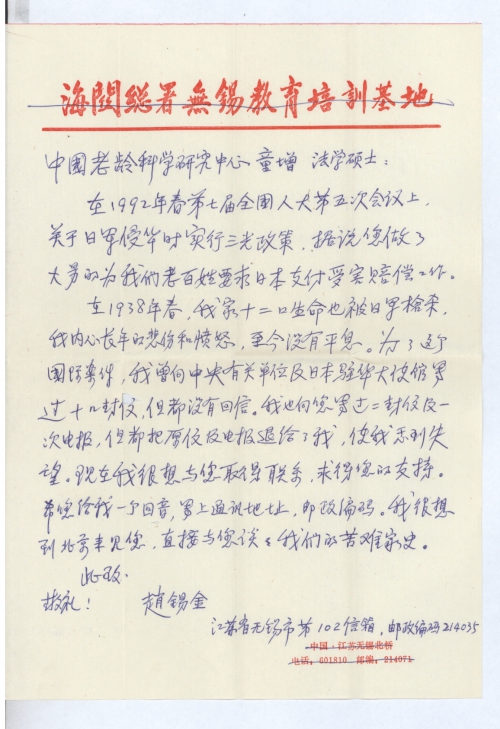 海関総署無锡教育培訓基地
中国老龄科学研究中心 童增 法学硕士：
在1992年春第七届全国人大第五次会议上，
关于日军侵华时实行三光政策，据说您做了
大量的为我们老百姓要求日本支付受害赔偿工作。
在1938年春，我家十二口生命也被日军枪杀，
我内心长年的悲伤和愤怒，至今没有平息。为了这个
国际案件，我曾向中央有关单位及日本驻华大使馆写
过十几封信，但都没有回信。我也向您写过二封信及一
次电报，但都把原信及电报退给了我，使我感到失
望。现在我很想与您取得联系，求得您的支持。
希您给我一个回音，写上通讯地址，邮政编码。我很想
到北京来见您，直接与您谈谈我们的苦难家史。
此致
敬礼！ 赵锡金
江苏省无锡市第102信箱，邮政编码214035
中国·江苏无锡北桥
电话：601810 邮编：214071